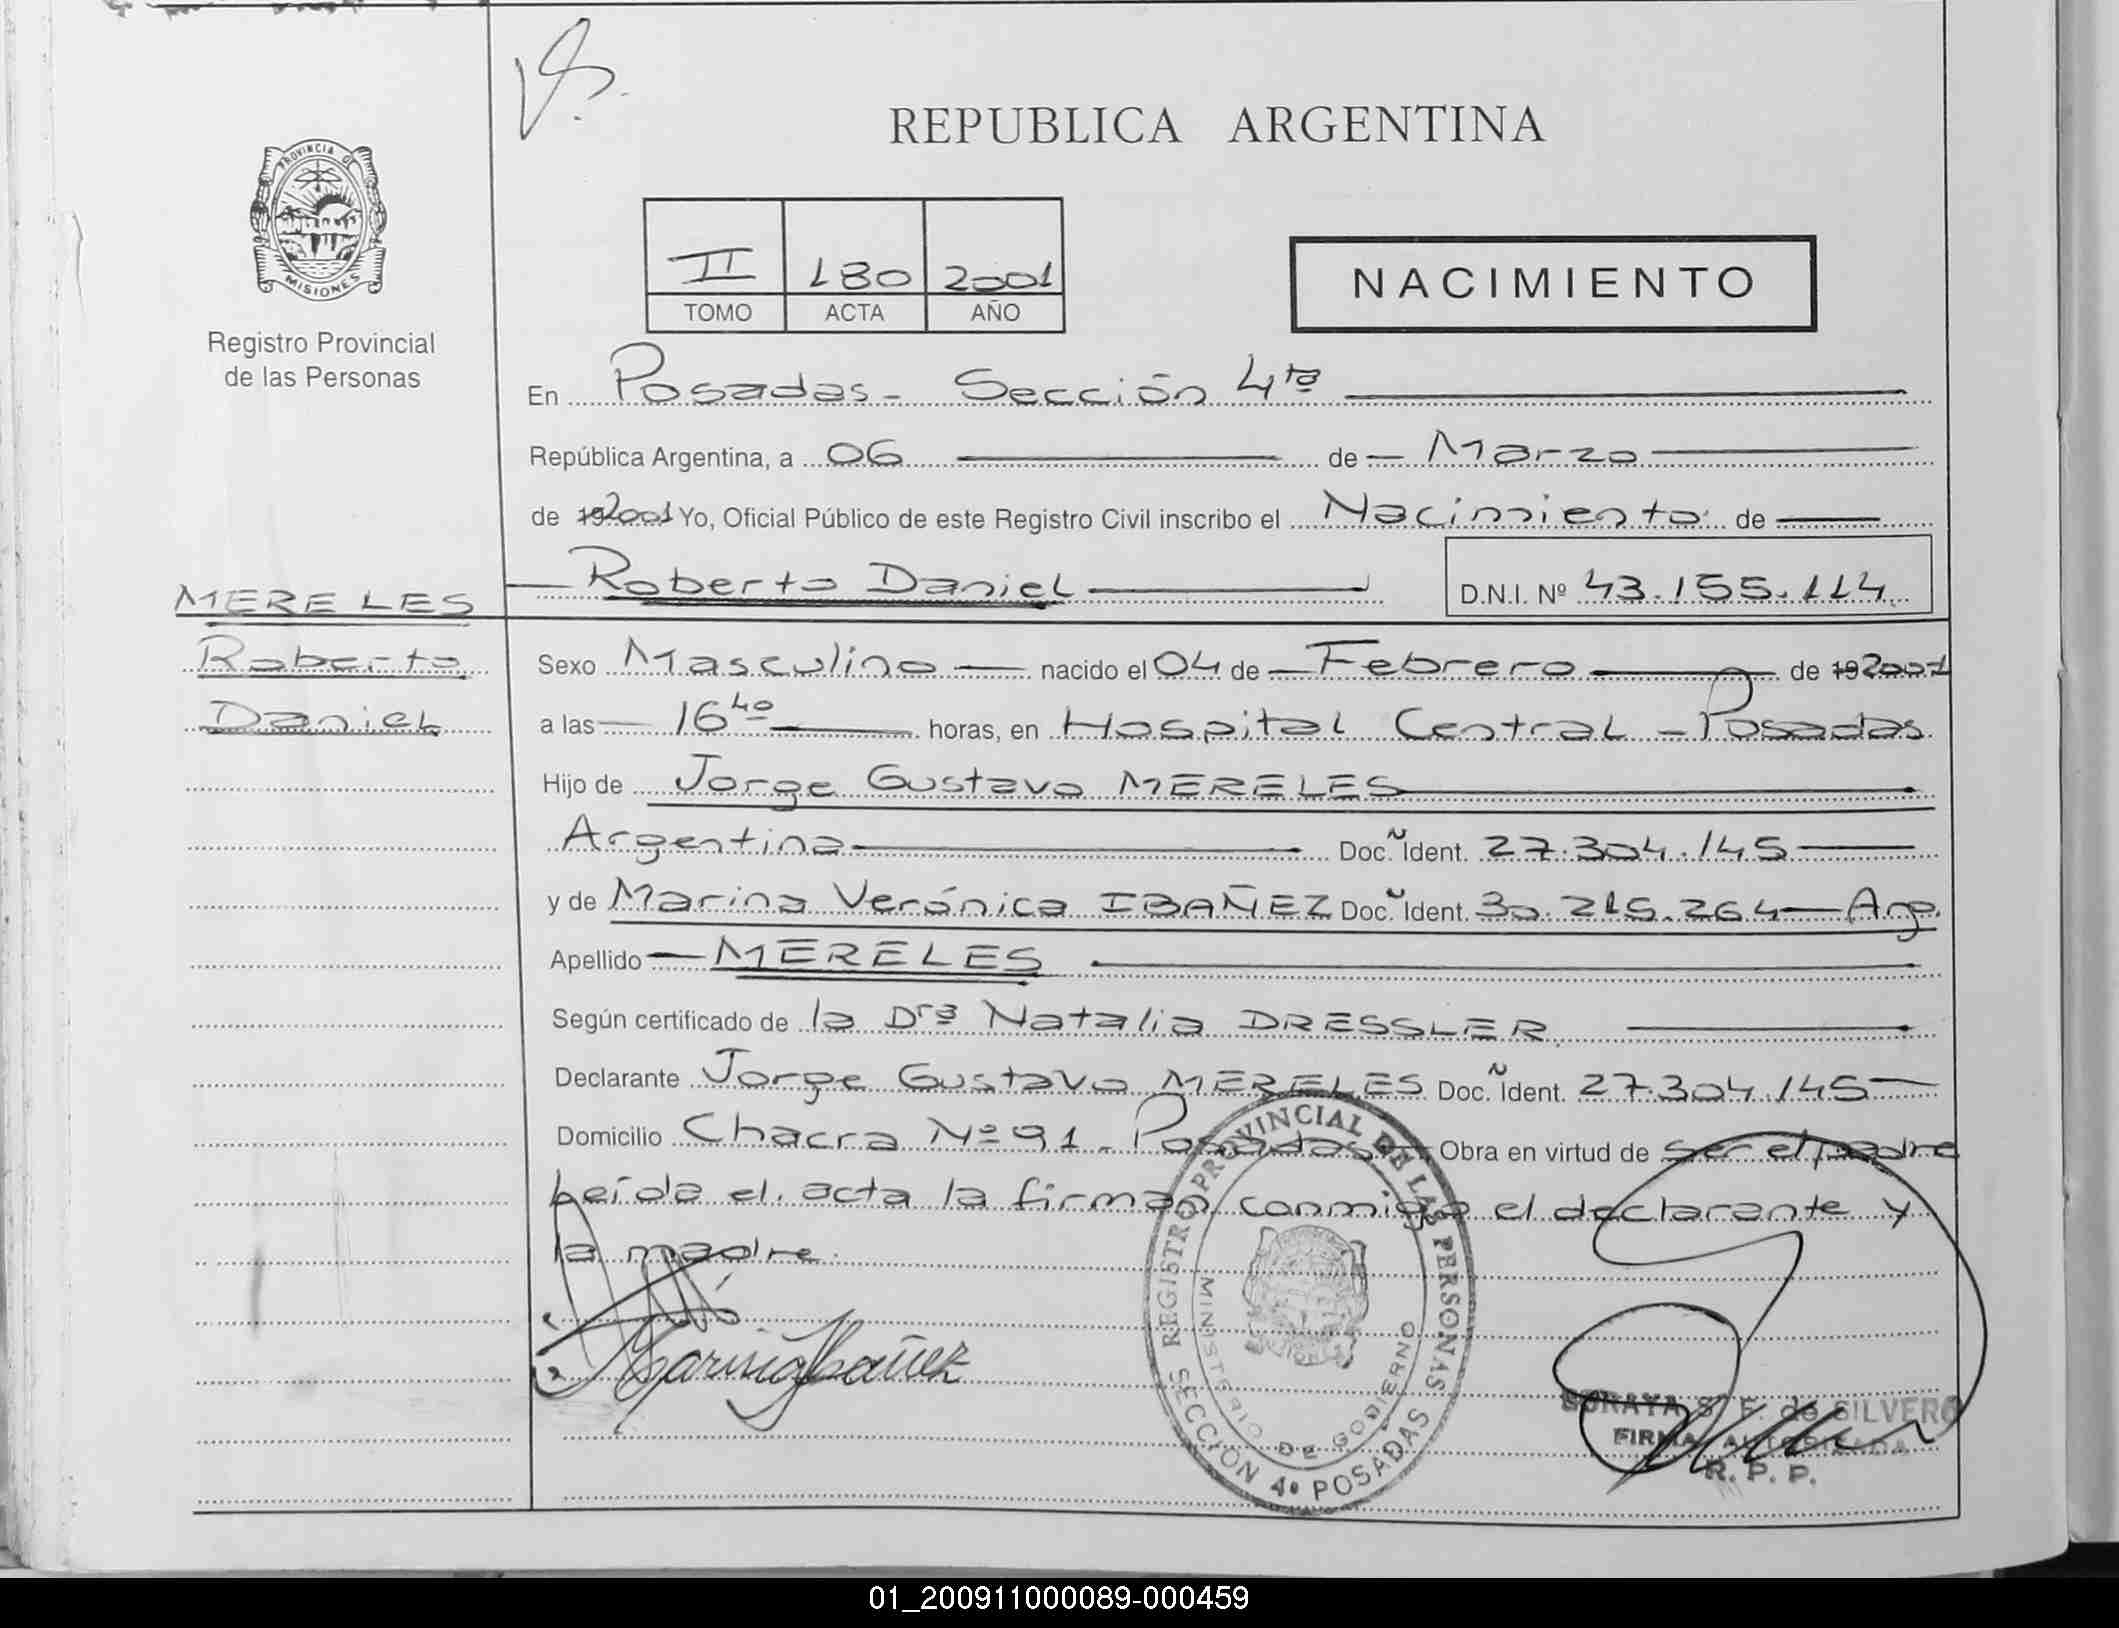 VB.
REPUBLICA ARGENTINA
PROVINCIA DE
MISIONES
Registro Provincial
de las Personas
II 180 2001
TOMO ACTA AÑO
NACIMIENTO
En Posadas - Sección 4ta
República Argentina, a 06 de Marzo
de 192001 Yo, Oficial Público de este Registro Civil inscribo el Nacimiento de
Roberto Daniel D.N.I. Nº 43.155.114
MERELES
Roberto
Daniel
Sexo Masculino nacido el 04 de Febrero de 192001
a las 16 40 horas, en Hospital Central - Posadas.
Hijo de Jorge Gustavo MERELES
Argentina Doc. Ident. 27.304.145
y de Marina Verónica IBAÑEZ Doc. Ident. 30.215.264 - Arg.
Apellido MERELES
Según certificado de la Dra Natalia DRESSLER
Declarante Jorge Gustavo MERELES Doc. Ident. 27.304.145
Domicilio Chacra Nº 91 - Posadas Obra en virtud de ser el padre
Leída el acta la firman conmigo el declarante y
la madre.
Marina Ibañez
REGISTRO PROVINCIAL DE LAS PERSONAS
MINISTERIO DE GOBIERNO
SECCIÓN 4º POSADAS
SORAYA S. F. de SILVERO
FIRMA AUTORIZADA
R. P. P.
01_200911000089-000459